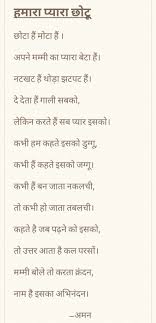 हमारा प्यारा छोटू
छोटा हैं मोटा हैं ।
अपने मम्मी का प्यारा बेटा हैं।
नटखट हैं थोड़ा झटपट हैं।
दे देता हैं गाली सबको,
लेकिन करते हैं सब प्यार इसको।
कभी हम कहते इसको डुग्गु,
कभी हैं कहते इसको जग्गू।
कभी हैं बन जाता नकलची,
तो कभी हो जाता तबलची।
कहते है जब पढ़ने को इसको,
तो उत्तर आता हैं कल परसों।
मम्मी बोले तो करता क्रंदन,
नाम है इसका अभिनंदन।
–अमन